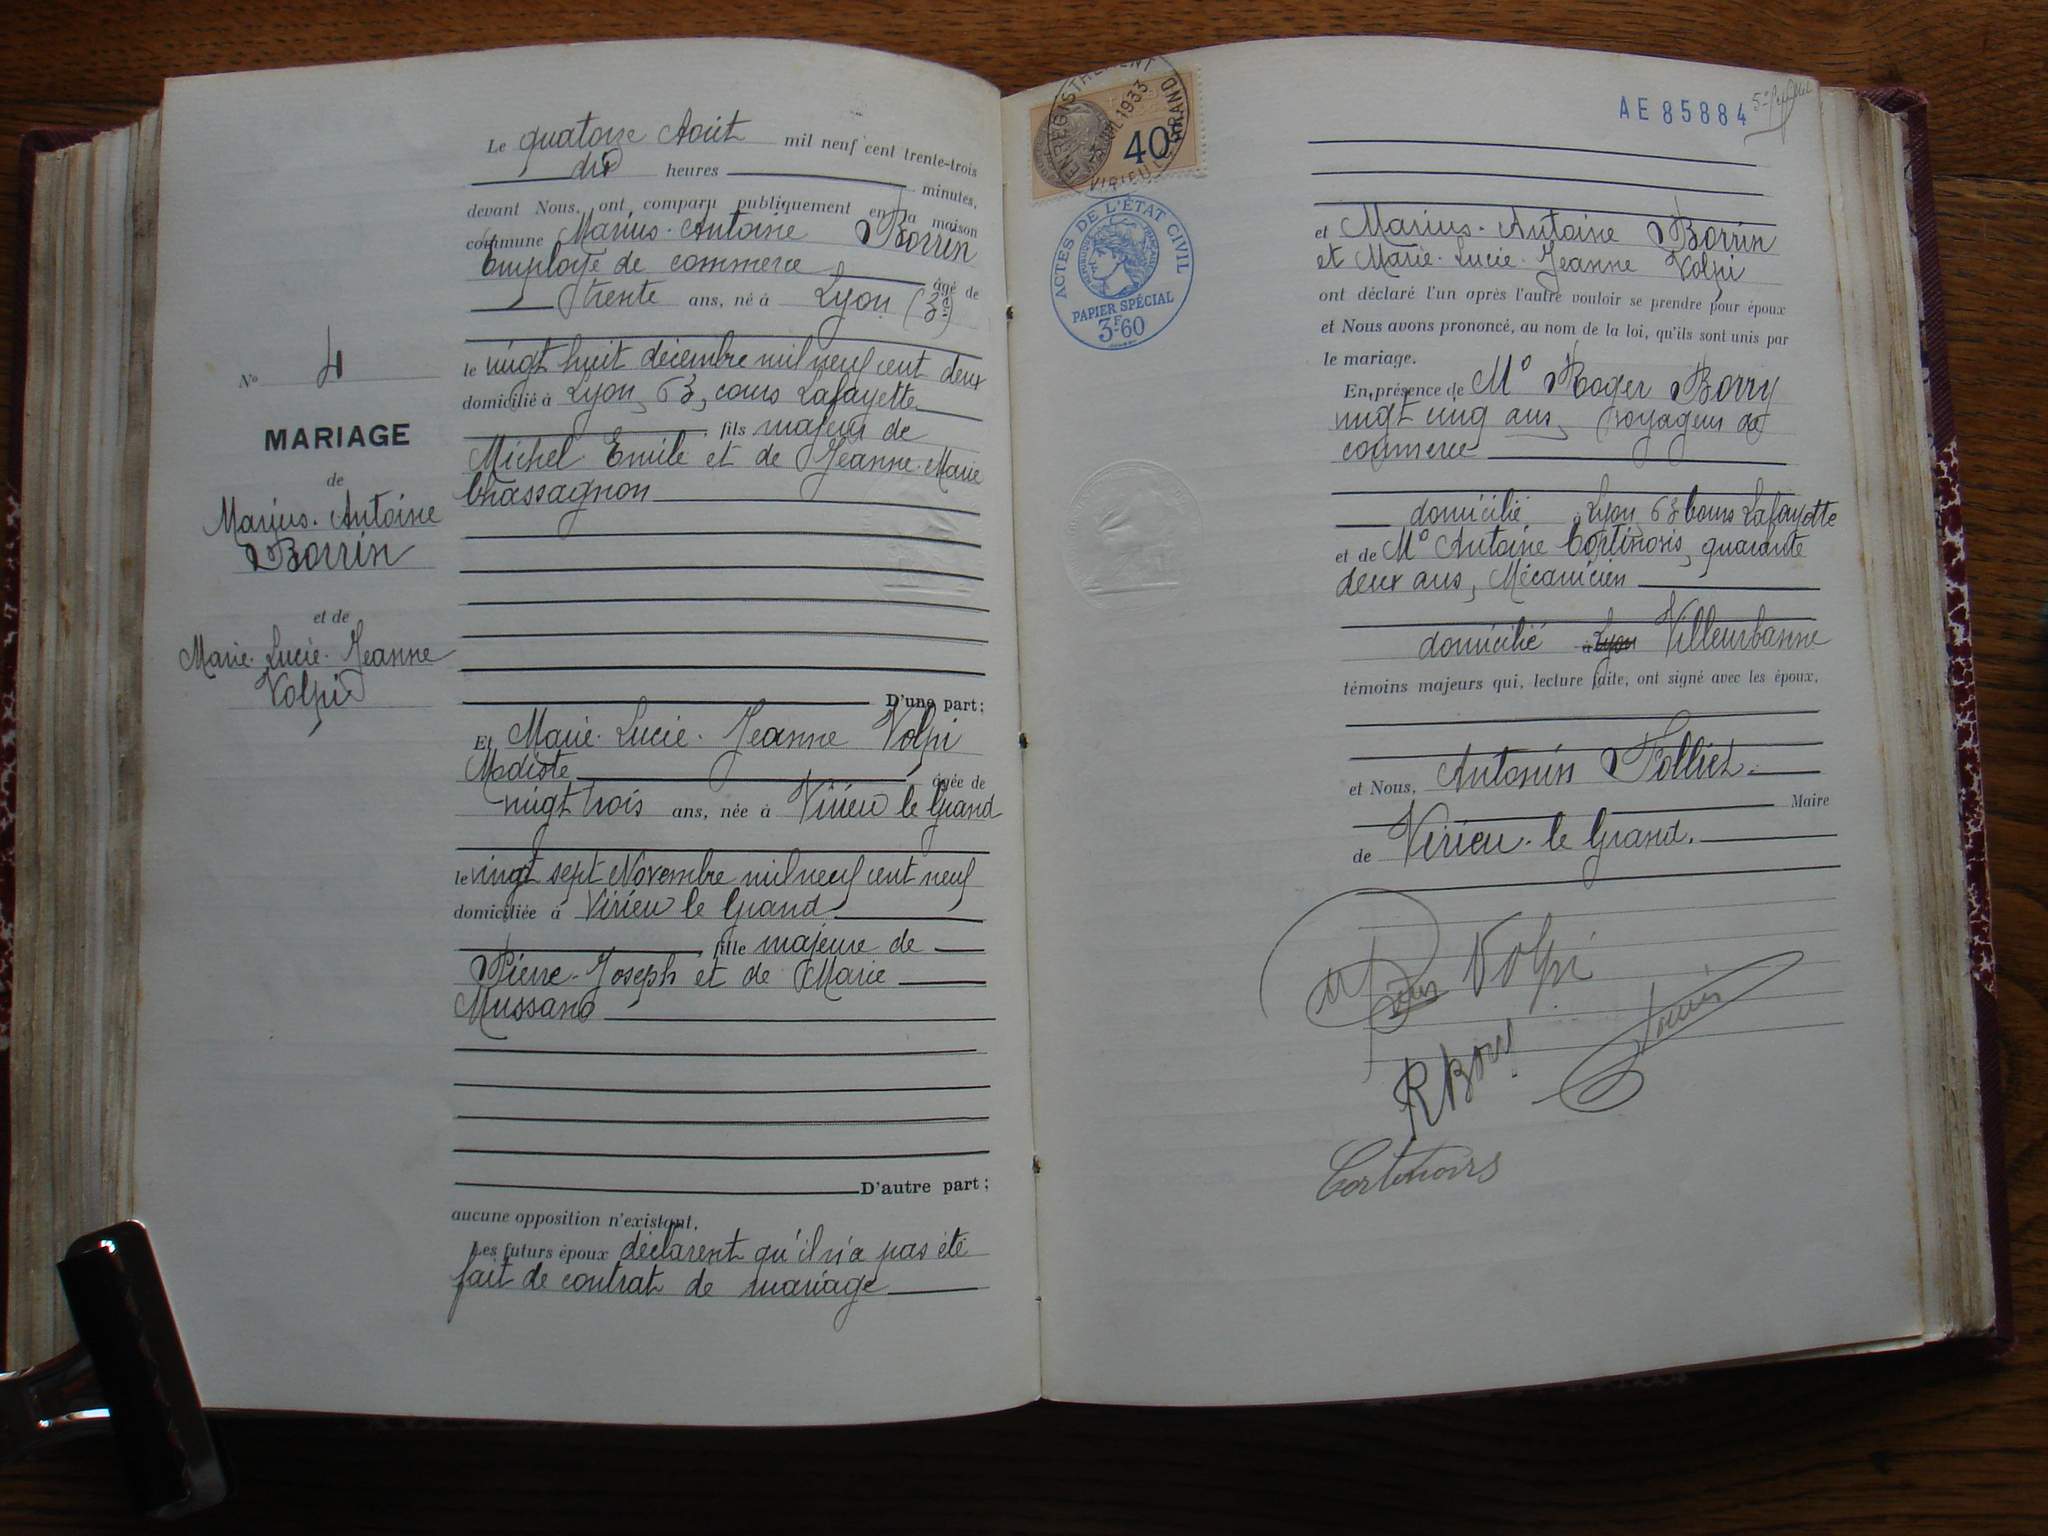 Le quatorze Août mil neuf cent trente-trois
dix heures minutes,
devant Nous, ont comparu publiquement en la maison
commune Marius-Antoine Borrin
Employé de commerce âgé de
trente ans, né à Lyon (3e)
le vingt huit décembre mil neuf cent deux
domicilié à Lyon, 63, cours Lafayette
fils majeur de
Michel Emile et de Jeanne-Marie
Chassagnon
N° 4
MARIAGE
de
Marius-Antoine
Borrin
et de
Marie-Lucie-Jeanne
Volpi
D'une part;
Et Marie-Lucie-Jeanne Volpi
Modiste âgée de
vingt trois ans, née à Virieu le Grand
le vingt sept Novembre mil neuf cent neuf
domiciliée à Virieu le Grand
fille majeure de
Pierre-Joseph et de Marie
Mussano
D'autre part;
aucune opposition n'existant,
Les futurs époux déclarent qu'il n'a pas été
fait de contrat de mariage
ENREGISTREMENT
1933
VIRIEU-L-GRAND
40
ACTES DE L'ÉTAT CIVIL
RÉPUBLIQUE FRANÇAISE
PAPIER SPÉCIAL
3F60
AE 85884
5e feuillet
et Marius-Antoine Borrin
et Marie-Lucie-Jeanne Volpi
ont déclaré l'un après l'autre vouloir se prendre pour époux
et Nous avons prononcé, au nom de la loi, qu'ils sont unis par
le mariage.
En présence de Mr Roger Borry
vingt cinq ans, voyageur de
commerce
domicilié Lyon 63 Cours Lafayette
et de Mr Antoine Cortinovis, quarante
deux ans, Mécanicien
domicilié à Lyon Villeurbanne
témoins majeurs qui, lecture faite, ont signé avec les époux,
et Nous, Antonin Folliet
Maire
de Virieu-le Grand.
Volpi